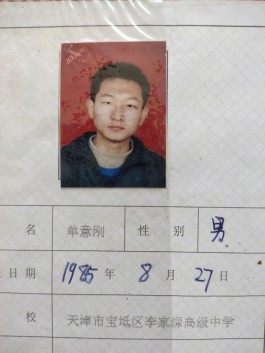 名 单意刚 性 别 男
日期 1985 年 8 月 27 日
校 天津市宝坻区李家深高级中学